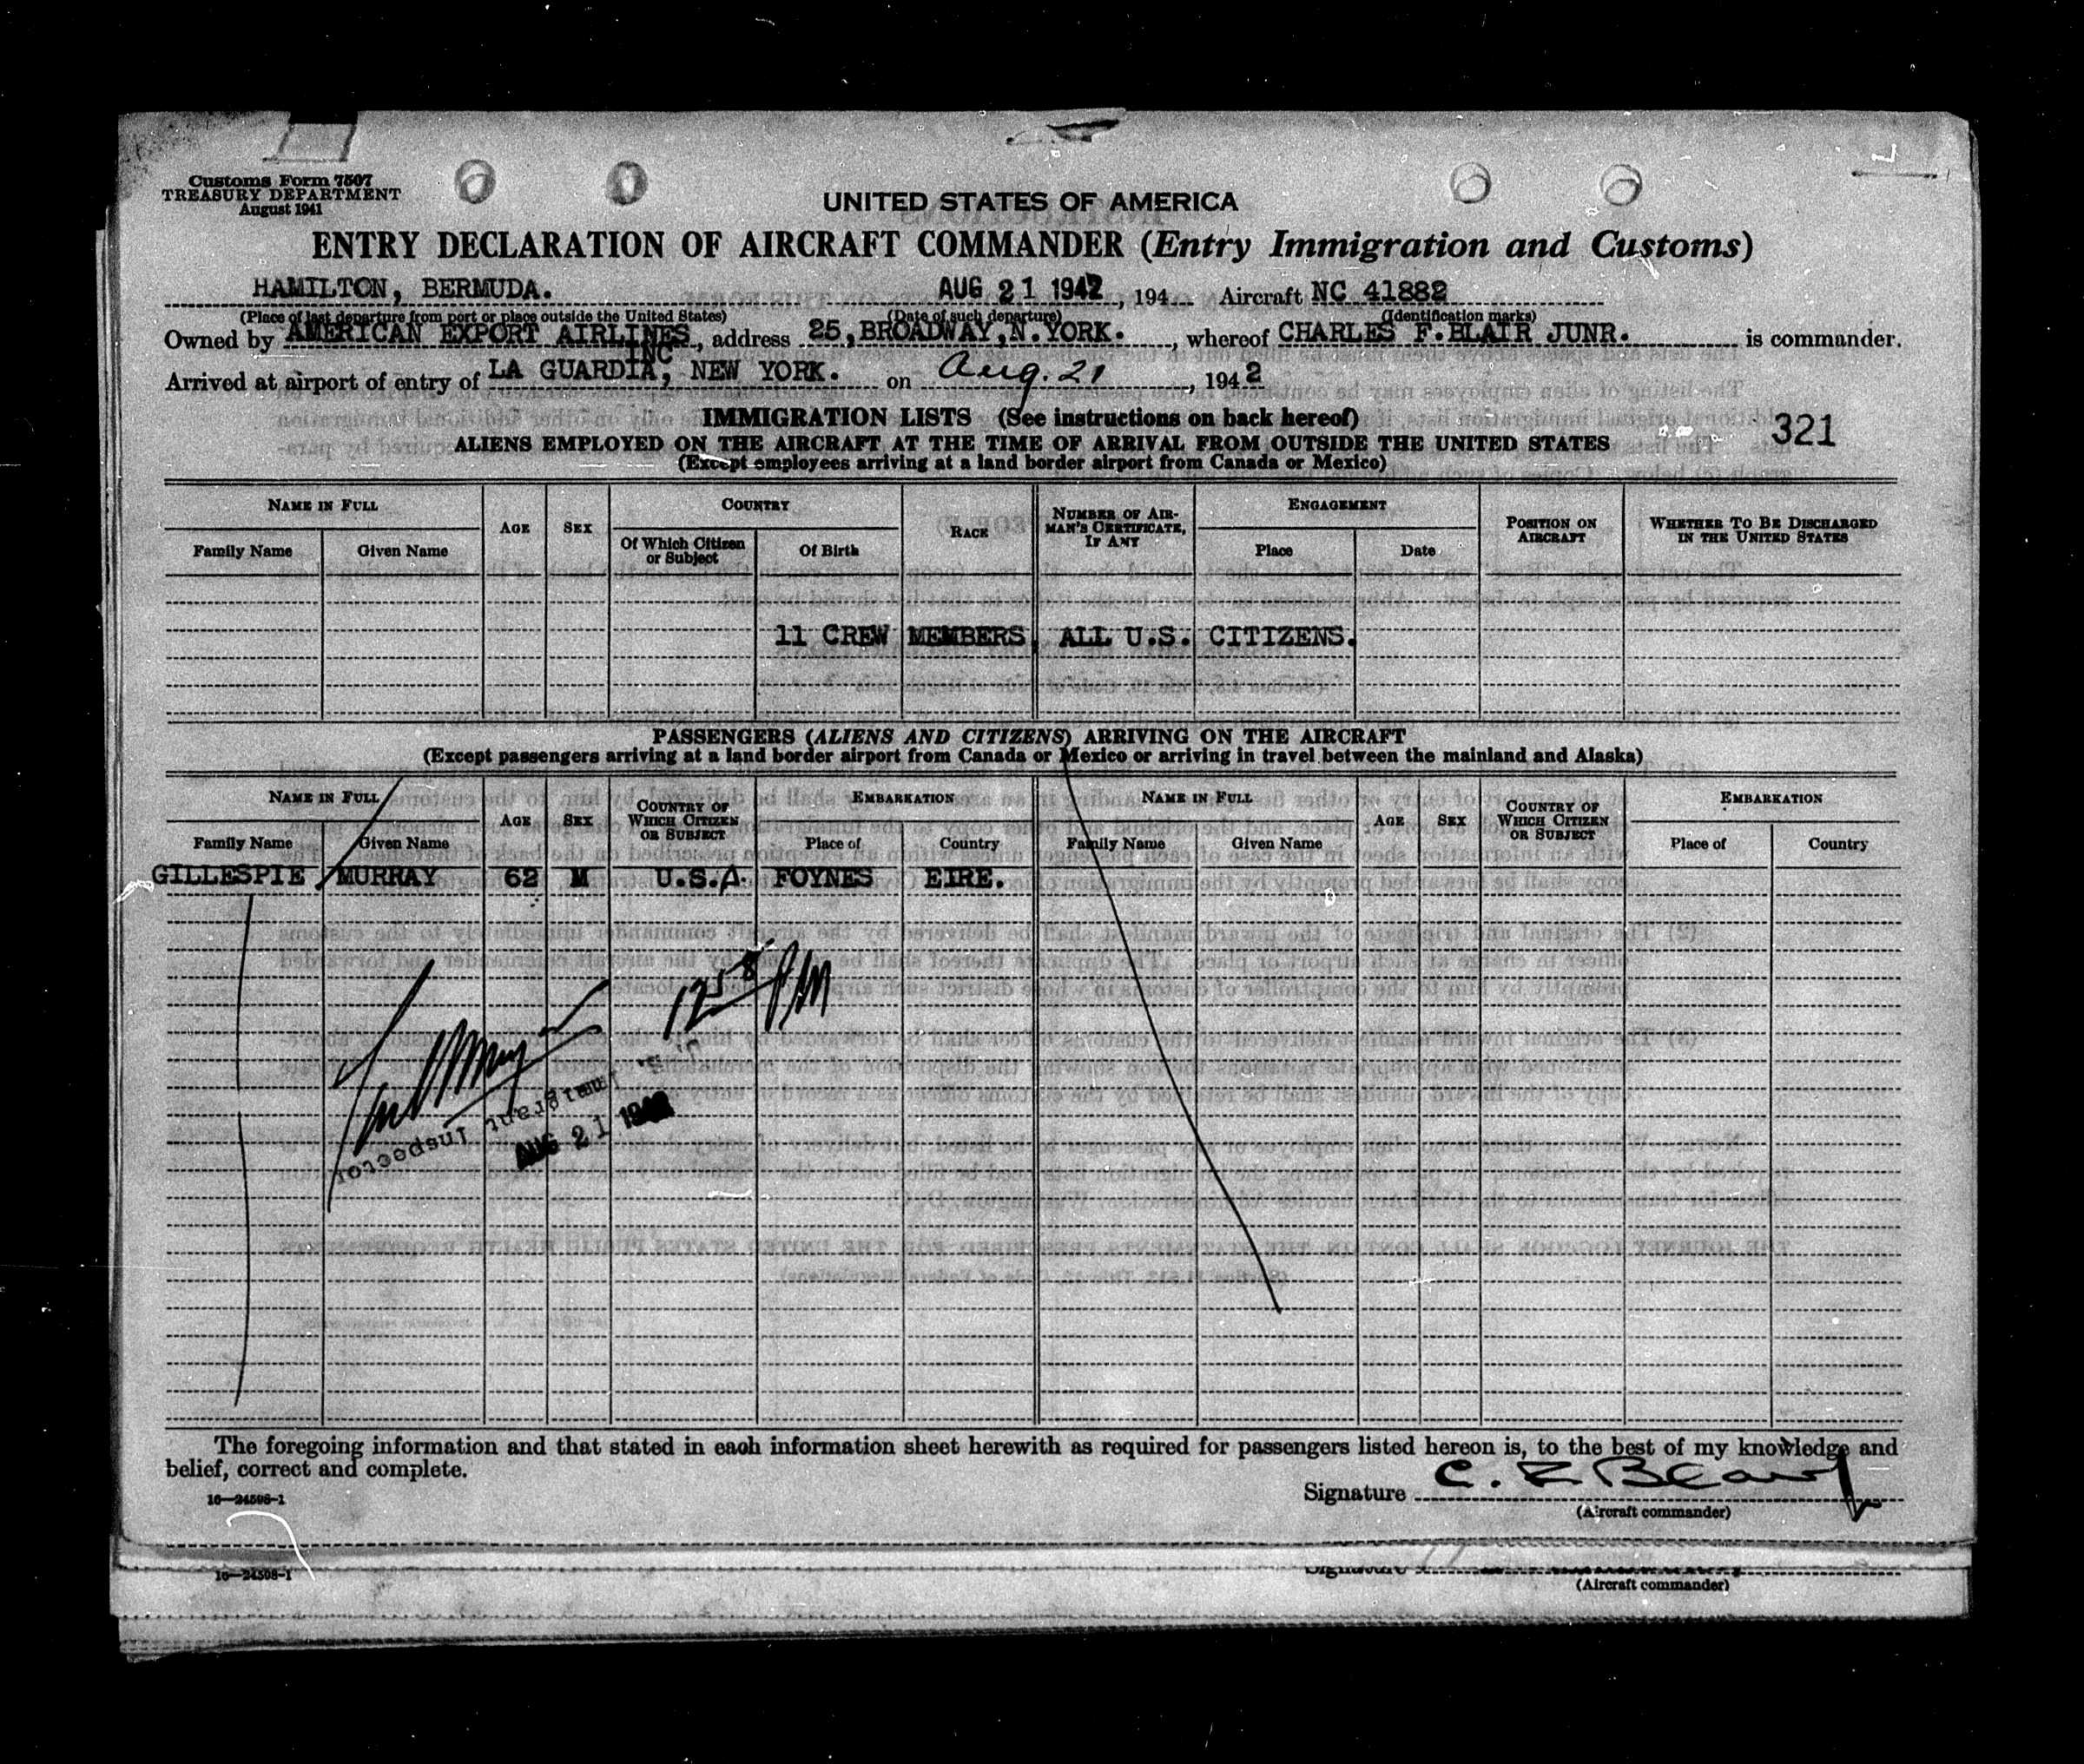 Customs Form 7507
TREASURY DEPARTMENT
August 1941
UNITED STATES OF AMERICA
ENTRY DECLARATION OF AIRCRAFT COMMANDER (Entry Immigration and Customs)
HAMILTON, BERMUDA. AUG 21 1942, 194 Aircraft NC 41882
(Place of last departure from port or place outside the United States) (Date of such departure) (Identification marks)
Owned by AMERICAN EXPORT AIRLINES, address 25, BROADWAY, N. YORK. , whereof CHARLES F. BLAIR JUNR. is commander.
INC
Arrived at airport of entry of LA GUARDIA, NEW YORK. on Aug. 21, 1942
IMMIGRATION LISTS (See instructions on back hereof)
321
ALIENS EMPLOYED ON THE AIRCRAFT AT THE TIME OF ARRIVAL FROM OUTSIDE THE UNITED STATES
(Except employees arriving at a land border airport from Canada or Mexico)
NAME IN FULL AGE SEX COUNTRY RACE NUMBER OF AIRMAN'S CERTIFICATE, IF ANY ENGAGEMENT POSITION ON AIRCRAFT WHETHER TO BE DISCHARGED IN THE UNITED STATES
Family Name Given Name Of Which Citizen or Subject Of Birth Place Date
11 CREW MEMBERS, ALL U.S. CITIZENS.
PASSENGERS (ALIENS AND CITIZENS) ARRIVING ON THE AIRCRAFT
(Except passengers arriving at a land border airport from Canada or Mexico or arriving in travel between the mainland and Alaska)
NAME IN FULL AGE SEX COUNTRY OF WHICH CITIZEN OR SUBJECT EMBARKATION NAME IN FULL AGE SEX COUNTRY OF WHICH CITIZEN OR SUBJECT EMBARKATION
Family Name Given Name Place of Country Family Name Given Name Place of Country
GILLESPIE MURRAY 62 M U.S.A. FOYNES EIRE.
1258 PM
U.S. Immigrant Inspector
AUG 21 1942
The foregoing information and that stated in each information sheet herewith as required for passengers listed hereon is, to the best of my knowledge and
belief, correct and complete.
16—24508-1
Signature C. F. Blair Jr
(Aircraft commander)
16—24508-1
Signature
(Aircraft commander)